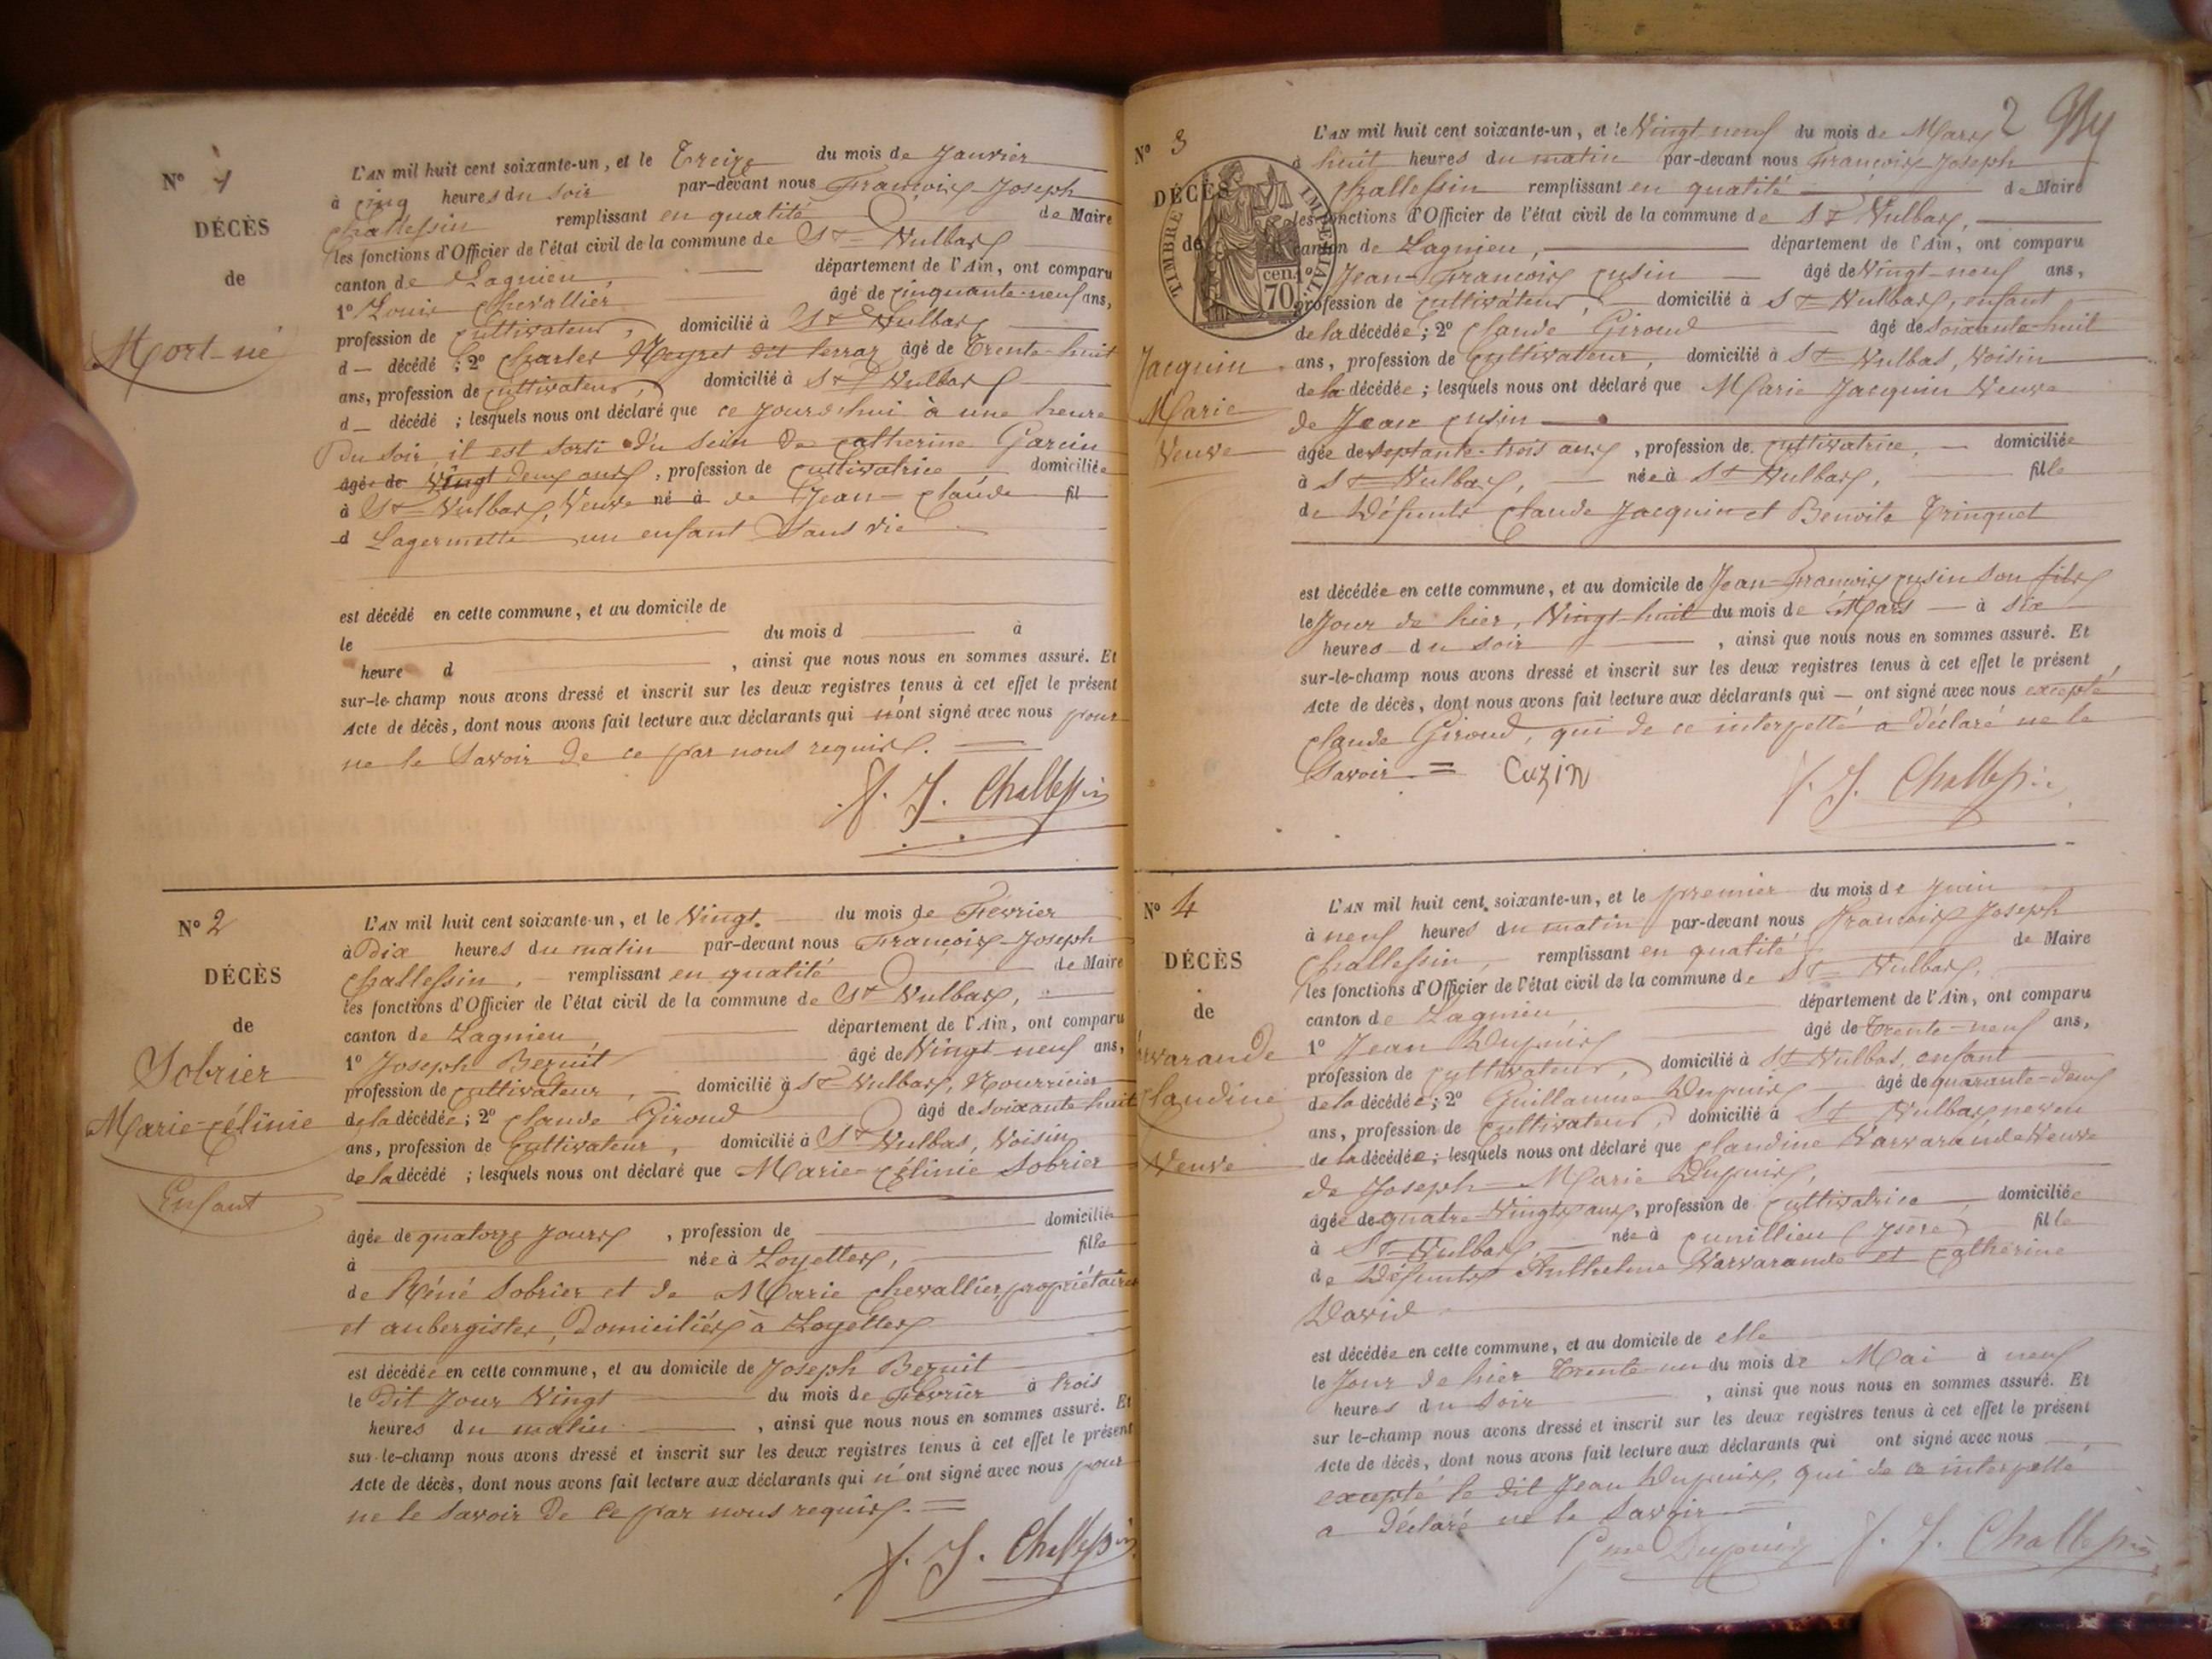 N° 1
DÉCÈS
de
Mort-né
L'AN mil huit cent soixante-un, et le Treize du mois de Janvier
à cinq heures du soir par-devant nous François Joseph
Challessin remplissant en qualité de Maire
les fonctions d'Officier de l'état civil de la commune de St Vulbas
canton de Lagnieu, département de l'Ain, ont comparu
1° Louis Chevallier âgé de cinquante-neuf ans,
profession de cultivateur, domicilié à St Vulbas
d décédé ; 2° Charles Neyret dit terraz âgé de Trente-huit
ans, profession de cultivateur, domicilié à St Vulbas
d décédé ; lesquels nous ont déclaré que ce jourd'hui à une heure
du soir, il est sorti du sein de Catherine Garcin
âgée de Vingt deux ans, profession de cultivatrice domiciliée
à St Vulbas, Veuve né à de Jean-Claude fil
d Lagermette un enfant sans vie
est décédé en cette commune, et au domicile de
le du mois d à
heure d , ainsi que nous nous en sommes assuré. Et
sur-le-champ nous avons dressé et inscrit sur les deux registres tenus à cet effet le présent
Acte de décès, dont nous avons fait lecture aux déclarants qui n'ont signé avec nous pour
ne le savoir de ce par nous requis.
f. J. Challessin
N° 2
DÉCÈS
de
Sobrier
Marie-Célinie
Enfant
L'AN mil huit cent soixante-un, et le Vingt du mois de Février
à Dix heures du matin par-devant nous François-Joseph
Challessin, remplissant en qualité de Maire
les fonctions d'Officier de l'état civil de la commune de St Vulbas,
canton de Lagnieu, département de l'Ain, ont comparu
1° Joseph Bernit âgé de Vingt-neuf ans,
profession de cultivateur, domicilié à St Vulbas, Nourricier
de la décédée ; 2° Claude Giroud âgé de soixante-huit
ans, profession de Cultivateur, domicilié à St Vulbas, Voisin
de la décédé ; lesquels nous ont déclaré que Marie-Célinie Sobrier
âgée de quatorze jours, profession de domiciliée
à née à Loyettes, fille
de Réné Sobrier et de Marie Chevallier, propriétaires
et aubergistes, Domiciliés à Loyettes
est décédée en cette commune, et au domicile de Joseph Bernit
le Dit Jour Vingt du mois de Février à trois
heures du matin , ainsi que nous nous en sommes assuré. Et
sur-le-champ nous avons dressé et inscrit sur les deux registres tenus à cet effet le présent
Acte de décès, dont nous avons fait lecture aux déclarants qui n'ont signé avec nous pour
ne le savoir de ce par nous requis.
f. J. Challessin
2
N° 3
DÉCÈS
de
TIMBRE IMPÉRIAL
70 cen.
Jacquin
Marie
Veuve
L'AN mil huit cent soixante-un, et le Vingt neuf du mois de Mars
à huit heures du matin par-devant nous François Joseph
Challessin remplissant en qualité de Maire
les fonctions d'Officier de l'état civil de la commune de St Vulbas,
canton de Lagnieu, département de l'Ain, ont comparu
1° Jean-François Cusin âgé de Vingt-neuf ans,
profession de Cultivateur, domicilié à St Vulbas, enfant
de la décédée ; 2° Claude Giroud âgé de soixante-huit
ans, profession de Cultivateur, domicilié à St Vulbas, Voisin
de la décédée ; lesquels nous ont déclaré que Marie Jacquin Veuve
de Jean Cusin
âgée de septante-trois ans, profession de cultivatrice, domiciliée
à St Vulbas, née à St Vulbas, fille
de Défunts Claude Jacquin et Benoite Trinquet
est décédée en cette commune, et au domicile de Jean-François Cusin son fils
le Jour de hier, Vingt-huit du mois de Mars à six
heures du soir , ainsi que nous nous en sommes assuré. Et
sur-le-champ nous avons dressé et inscrit sur les deux registres tenus à cet effet le présent
Acte de décès, dont nous avons fait lecture aux déclarants qui ont signé avec nous excepté
Claude Giroud, qui de ce interpellé a déclaré ne le
savoir. Cuzin
f. J. Challessin
N° 4
DÉCÈS
de
Varvarande
Claudine
Veuve
L'AN mil huit cent soixante-un, et le premier du mois de Juin
à neuf heures du matin par-devant nous François Joseph
Challessin, remplissant en qualité de Maire
les fonctions d'Officier de l'état civil de la commune de St Vulbas,
canton de Lagnieu, département de l'Ain, ont comparu
1° Jean Dupuis âgé de Trente-neuf ans,
profession de cultivateur, domicilié à St Vulbas, enfant
de la décédée ; 2° Guillaume Dupuis âgé de quarante-deux
ans, profession de cultivateur, domicilié à St Vulbas, neveu
de la décédée ; lesquels nous ont déclaré que Claudine Varvarande Veuve
de Joseph-Marie Dupuis,
âgée de quatre-Vingts ans, profession de cultivatrice, domiciliée
à St Vulbas née à (Isère) fille
de Défunts Anthelme Varvarande et Catherine
David
est décédée en cette commune, et au domicile de elle
le Jour de hier Trente-un du mois de Mai à neuf
heures du soir , ainsi que nous nous en sommes assuré. Et
sur le-champ nous avons dressé et inscrit sur les deux registres tenus à cet effet le présent
Acte de décès, dont nous avons fait lecture aux déclarants qui ont signé avec nous
excepté le dit Jean Dupuis, qui de ce interpellé
a déclaré ne le savoir
Gme Dupuis f. J. Challessin